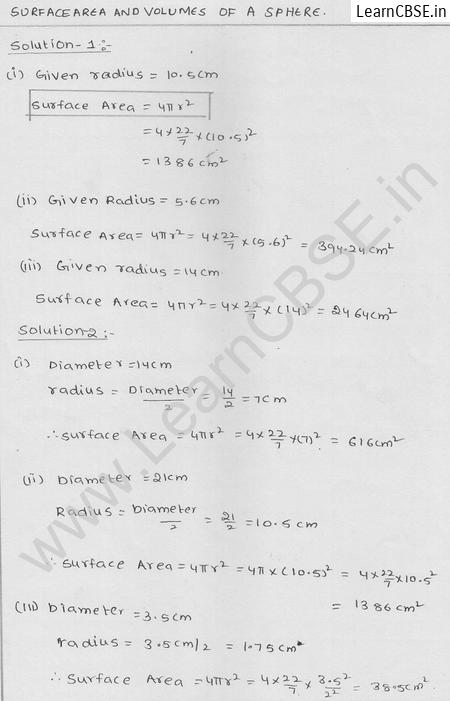 LearnCBSE.in
SURFACE AREA AND VOLUMES OF A SPHERE.
Solution-1:-
(i) Given radius = 10.5cm
Surface Area = 4πr²
= 4×22/7×(10.5)²
= 1386 cm²
(ii) Given Radius = 5.6cm
Surface Area = 4πr² = 4×22/7×(5.6)² = 394.24cm²
(iii) Given radius = 14cm
Surface Area = 4πr² = 4×22/7×(14)² = 2464cm²
Solution-2:-
(i) Diameter = 14cm
radius = Diameter/2 = 14/2 = 7cm
∴ surface Area = 4πr² = 4×22/7×(7)² = 616cm²
(ii) Diameter = 21cm
Radius = Diameter/2 = 21/2 = 10.5 cm
∴ Surface Area = 4πr² = 4π×(10.5)² = 4×22/7×10.5²
= 1386 cm²
(iii) Diameter = 3.5cm
radius = 3.5cm/2 = 1.75cm
∴ Surface Area = 4πr² = 4×22/7×3.5²/2² = 38.5cm²
www.LearnCBSE.in